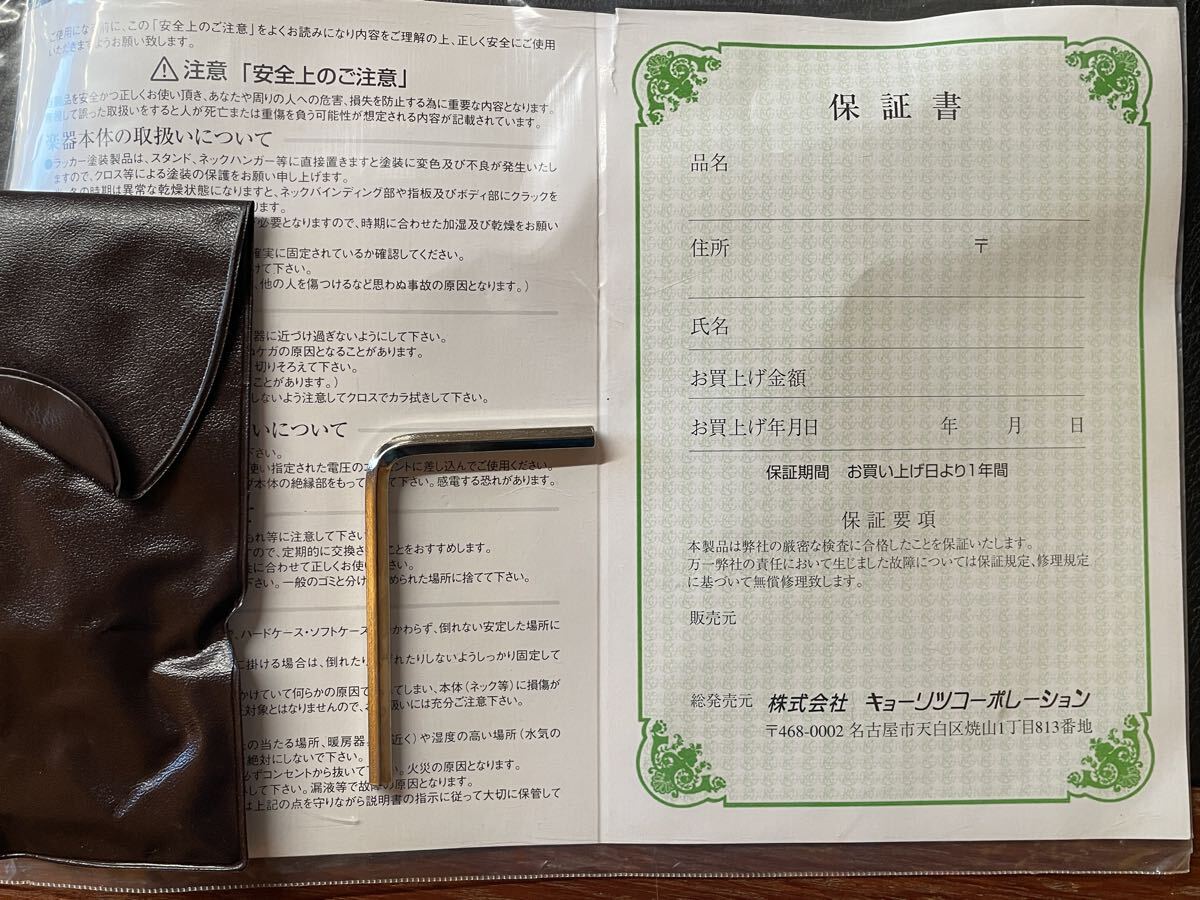 ご使用になる前に、この「安全上のご注意」をよくお読みになり内容をご理解の上、正しく安全にご使用
いただきますようお願い致します。
注意 「安全上のご注意」
製品を安全かつ正しくお使い頂き、あなたや周りの人への危害、損失を防止する為に重要な内容となります。
して誤った取扱いをすると人が死亡または重傷を負う可能性が想定される内容が記載されています。
楽器本体の取扱いについて
●ラッカー塗装製品は、スタンド、ネックハンガー等に直接置きますと塗装に変色及び不良が発生いたし
ますので、クロス等による塗装の保護をお願い申し上げます。
冬の時期は異常な乾燥状態になりますと、ネックバインディング部や指板及びボディ部にクラックを
ます。
必要となりますので、時期に合わせた加湿及び乾燥をお願い
確実に固定されているか確認してください。
けて下さい。
、他の人を傷つけるなど思わぬ事故の原因となります。)
器に近づけ過ぎないようにして下さい。
ケガの原因となることがあります。
切りそろえて下さい。
ことがあります。)
しないよう注意してクロスでカラ拭きして下さい。
いについて
下さい。
使い指定された電圧のコンセントに差し込んでご使用ください。
本体の絶縁部をもって て下さい。感電する恐れがあります。
られ等に注意して下さ
ますので、定期的に交換さ ことをおすすめします。
に合わせて正しくお使 さい。
下さい。一般のゴミと分け められた場所に捨てて下さい。
、ハードケース・ソフトケース かわらず、倒れない安定した場所に
に掛ける場合は、倒れたり ずれたりしないようしっかり固定して
かけていて何らかの原因で てしまい、本体(ネック等)に損傷が
対象とはなりませんので、 扱いには充分ご注意下さい。
の当たる場所、暖房器 近く)や湿度の高い場所(水気の
絶対にしないで下さい。
必ずコンセントから抜いて い。火災の原因となります。
して下さい。漏液等で故障の原因となります。
は上記の点を守りながら説明書の指示に従って大切に保管して
保証書
品名
住所 〒
氏名
お買上げ金額
お買上げ年月日 年 月 日
保証期間 お買い上げ日より1年間
保証要項
本製品は弊社の厳密な検査に合格したことを保証いたします。
万一弊社の責任において生じました故障については保証規定、修理規定
に基づいて無償修理致します。
販売元
総発売元 株式会社 キョーリツコーポレーション
〒468-0002 名古屋市天白区焼山1丁目813番地